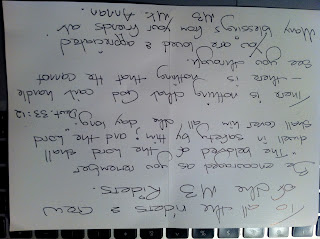 To all the riders & crew
of the MB Riders.
Be encouraged as you remember
"The beloved of the Lord shall
dwell in safety by Him, and the Lord
shall cover him all the day long"
Deut. 33:12
There is nothing that God can't handle
- there is nothing that He cannot
see you through.
You are loved & appreciated
Many blessings from your friends at
MB Mt. Annan.